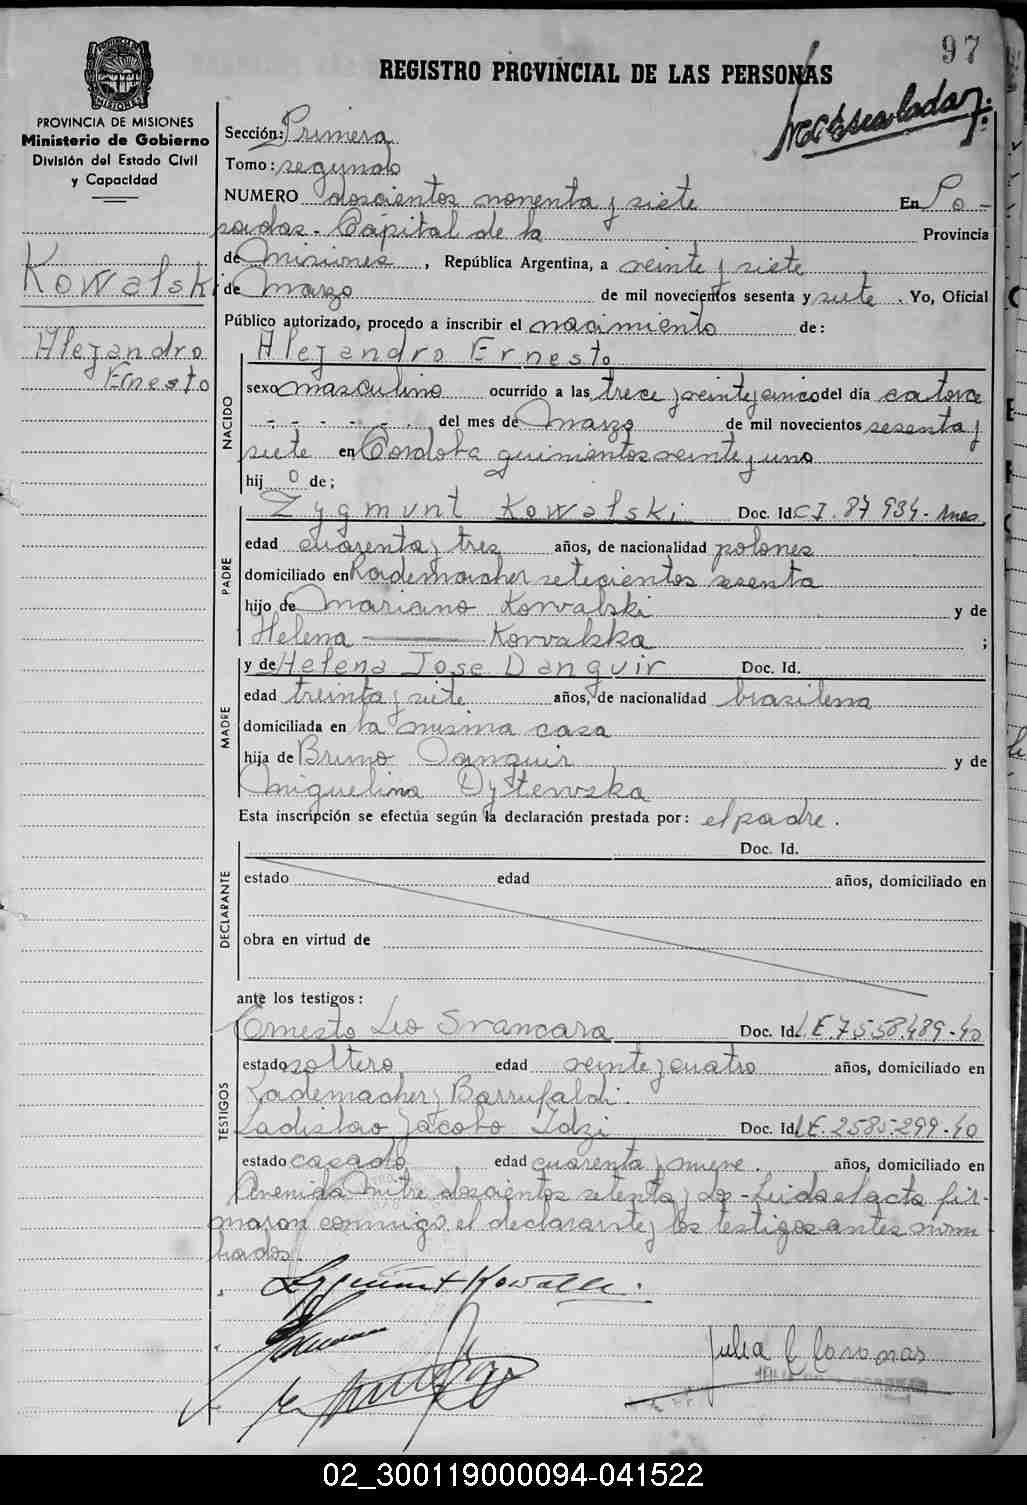 97
REGISTRO PROVINCIAL DE LAS PERSONAS
PROVINCIA DE MISIONES
Ministerio de Gobierno
División del Estado Civil
y Capacidad
Kowalski
Alejandro
Ernesto
Sección: Primera
Tomo: segundo
NUMERO doscientos noventa y siete En Po-
sadas. Capital de la Provincia
de Misiones, República Argentina, a veinte y siete
de Marzo de mil novecientos sesenta y siete. Yo, Oficial
Público autorizado, procedo a inscribir el nacimiento de:
Alejandro Ernesto
NACIDO
sexo masculino ocurrido a las trece y veinte y cinco del día catorce
- - - - - - del mes de Marzo de mil novecientos sesenta y
siete en Cordoba quinientos veinte y uno
hij o de;
PADRE
Zygmunt Kowalski Doc. Id. C.I. 87 934 - Mnes
edad cuarenta y tres años, de nacionalidad polones
domiciliado en Rademacher setecientos sesenta
hijo de Mariano Kowalski y de
Helena Kowalska ;
MADRE
y de Helena Jose Danguir Doc. Id.
edad treinta y siete años, de nacionalidad brasilena
domiciliada en la misma casa
hija de Bruno Danguir y de
Miguelina Dytewska
Esta inscripción se efectúa según la declaración prestada por: el padre.
DECLARANTE
Doc. Id.
estado edad años, domiciliado en
obra en virtud de
ante los testigos:
TESTIGOS
Ernesto Leo Svancara Doc. Id. L.E. 7.558.489-40
estado soltero edad veinte y cuatro años, domiciliado en
Rademacher y Barrufaldi.
Ladislao Jacobo Idzi Doc. Id. L.E. 2585299-40
estado casado edad cuarenta y nueve. años, domiciliado en
Avenida Mitre doscientos setenta y dos - Leida el acta fir-
maron conmigo el declarante y los testigos antes nom-
brados.
Zygmunt Kowalski.
02_300119000094-041522